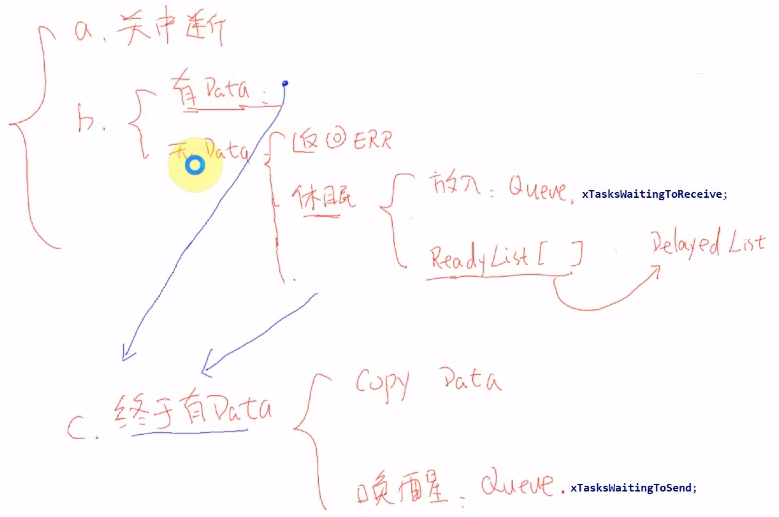 a. 关中断
b. 有Data:
无Data
返回ERR
休眠
放入: Queue. xTasksWaitingToReceive;
ReadyList[ ]
Delayed List
c. 终于有Data
Copy Data
唤醒: Queue. xTasksWaitingToSend;